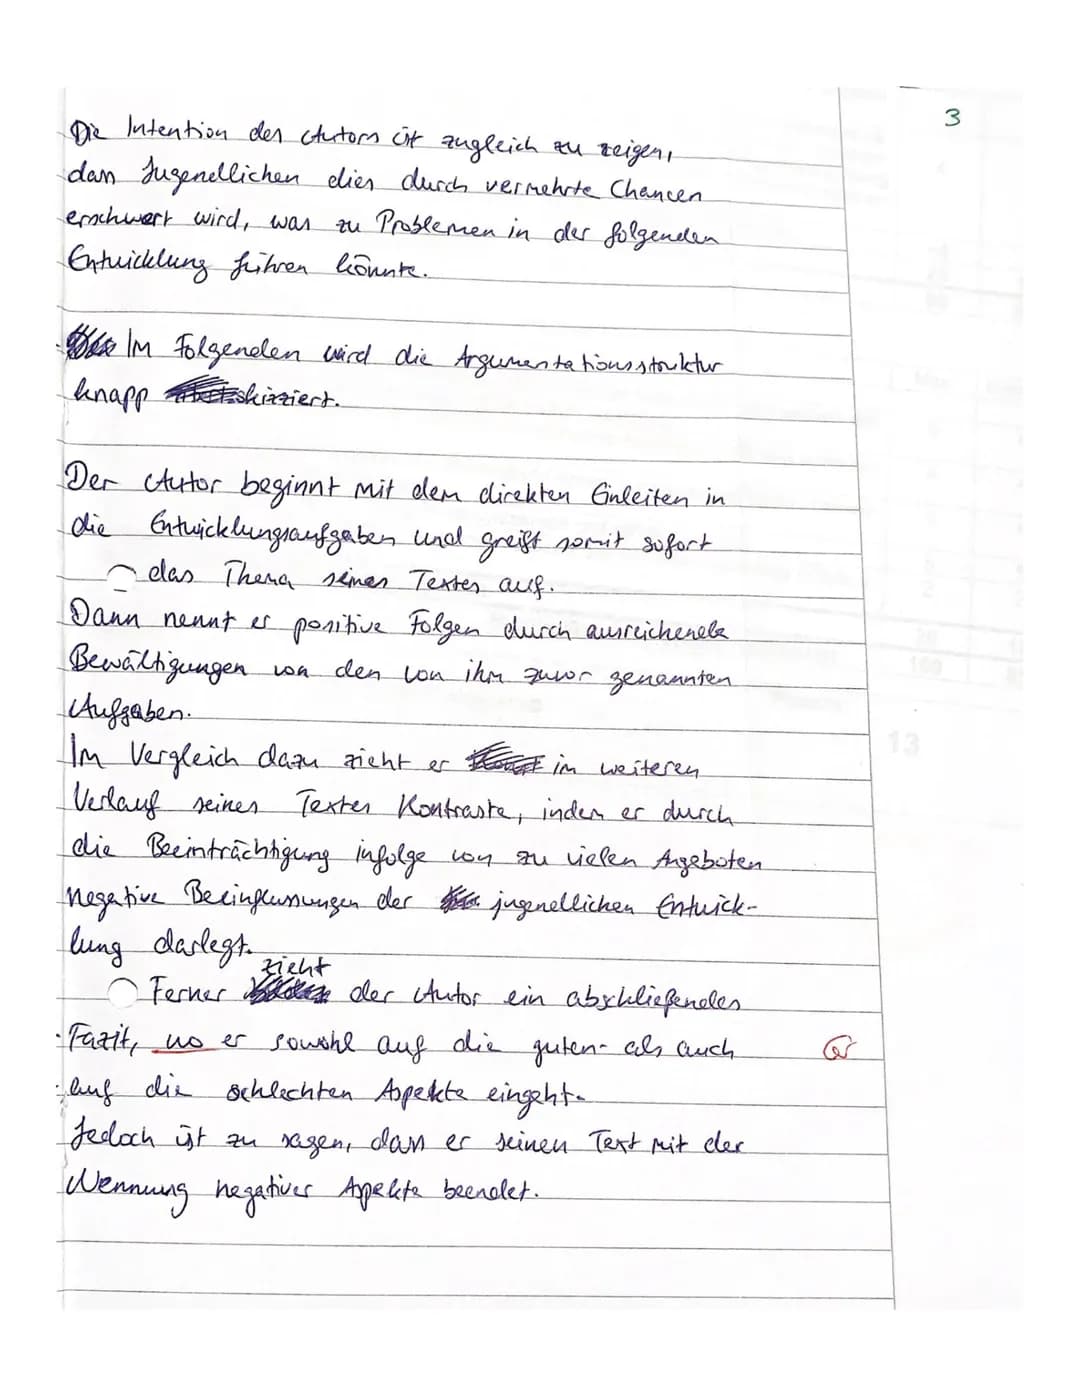 3
Die Intention des Autors ist zugleich zu zeigen,
dass Jugendlichen dies durch vermehrte Chancen
erschwert wird, was zu Problemen in der folgenden
Entwicklung führen könnte.
Im Folgenden wird die Argumentationsstruktur
knapp skizziert.
Der Autor beginnt mit dem direkten Einleiten in
die Entwicklungsaufgaben und greift somit sofort
das Thema seines Textes auf.
Dann nennt er positive Folgen durch ausreichende
Bewältigungen von den von ihm zuvor genannten
Aufgaben.
Im Vergleich dazu zieht er im weiteren
Verlauf seines Textes Kontraste, indem er durch
die Beeinträchtigung infolge von zu vielen Angeboten
negative Beeinflussungen der jugendlichen Entwick-
lung darlegt.
Ferner zieht der Autor ein abschließendes
Fazit, wo er sowohl auf die guten- als auch
auf die schlechten Aspekte eingeht.
Jedoch ist zu sagen, dass er seinen Text mit der
Wennung negativer Aspekte beendet.
13